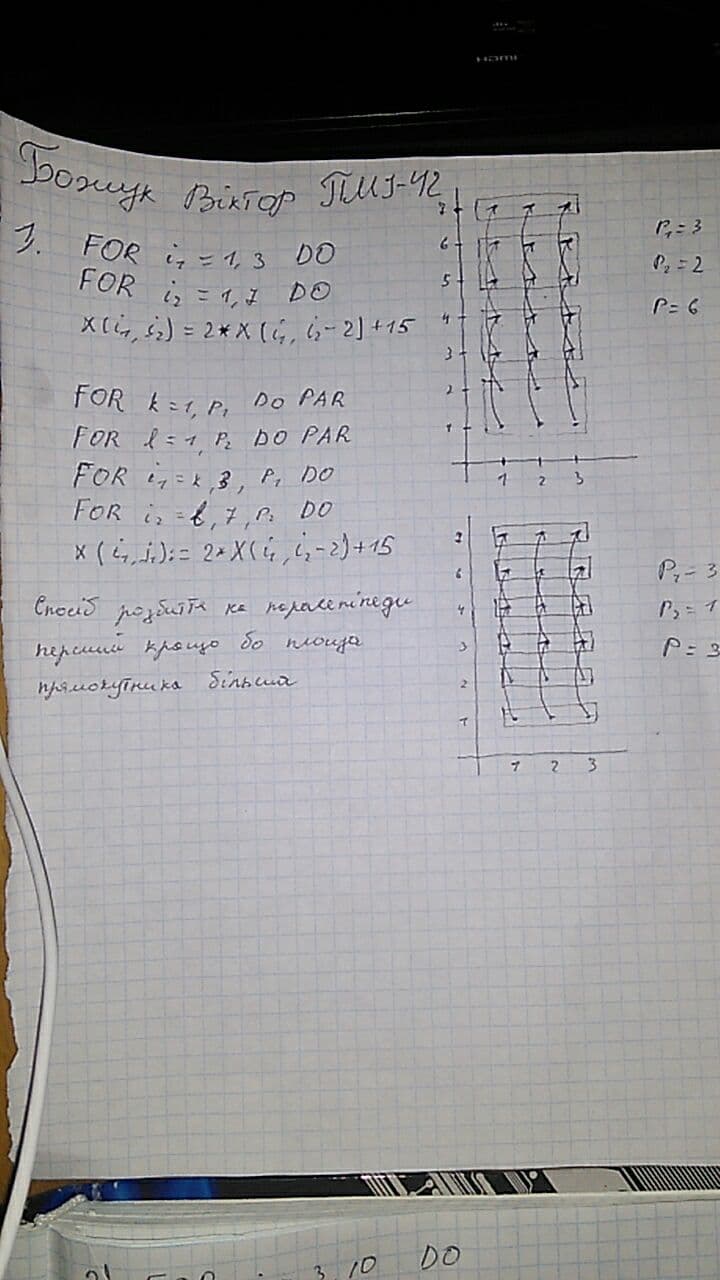 HDMI
Божук Віктор ПМІ-42
1. FOR i₁ = 1, 3 DO
FOR i₂ = 1, 7 DO
X(i₁, i₂) = 2*X(i₁, i₂-2)+15
FOR k=1, P₁ DO PAR
FOR l=1, P₂ DO PAR
FOR i₁=k, 3, P₁ DO
FOR i₂=l, 7, P₂ DO
X(i₁, i₁):= 2*X(i₁, i₂-2)+15
Спосіб розбиття на паралепіпеди
перший кращо бо площа
прямокутника більша
7
6
5
4
3
2
1
1 2 3
P₁=3
P₂=2
P=6
7
6
4
3
2
1
1 2 3
P₁=3
P₂=1
P=3
3, 10 DO